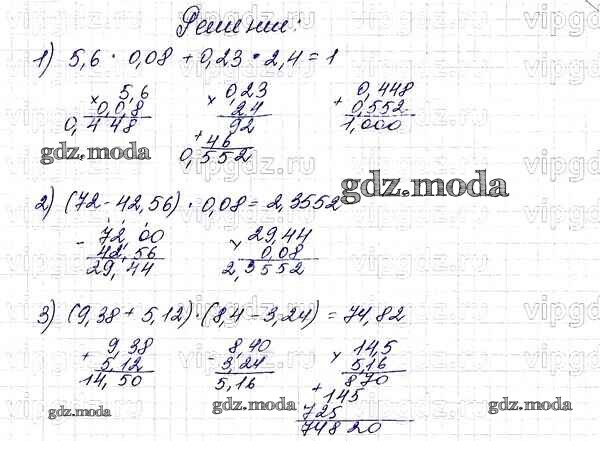 Решение:
1) 5,6 · 0,08 + 0,23 · 2,4 = 1
× 5,6
0,08
0,448
× 0,23
24
92
+ 46
0,552
+ 0,448
0,552
1,000
gdz.moda
gdz.moda
2) (72 - 42,56) · 0,08 = 2,3552
- 72,00
42,56
29,44
× 29,44
0,08
2,3552
3) (9,38 + 5,12) · (8,4 - 3,24) = 74,82
+ 9,38
5,12
14,50
- 8,40
3,24
5,16
× 14,5
5,16
870
+ 145
725
74820
gdz.moda
gdz.moda
gdz.moda